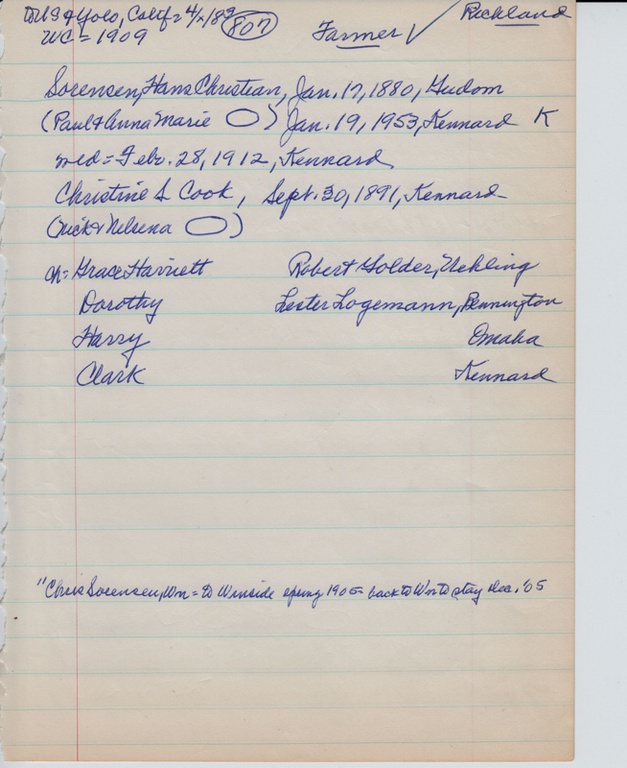 to US & Yolo, Calif = 4/-/89 807 Farmer ✓ Richland
WC = 1909
Sorensen, Hans Christian, Jan. 17, 1880, Gudom
(Paul & Anna Marie ) Jan. 19, 1953, Kennard K
md = Feb. 28, 1912, Kennard
Christine S Cook, Sept. 30, 1891, Kennard
(Nick & Nelsena )
ch = Grace Harriett Robert Golder, Uehling
Dorothy Lester Logemann, Bennington
Harry Omaha
Clark Kennard
"Chris Sorensen, Wn = to Winside spring 1905 = back to Wn to stay Dec. '05